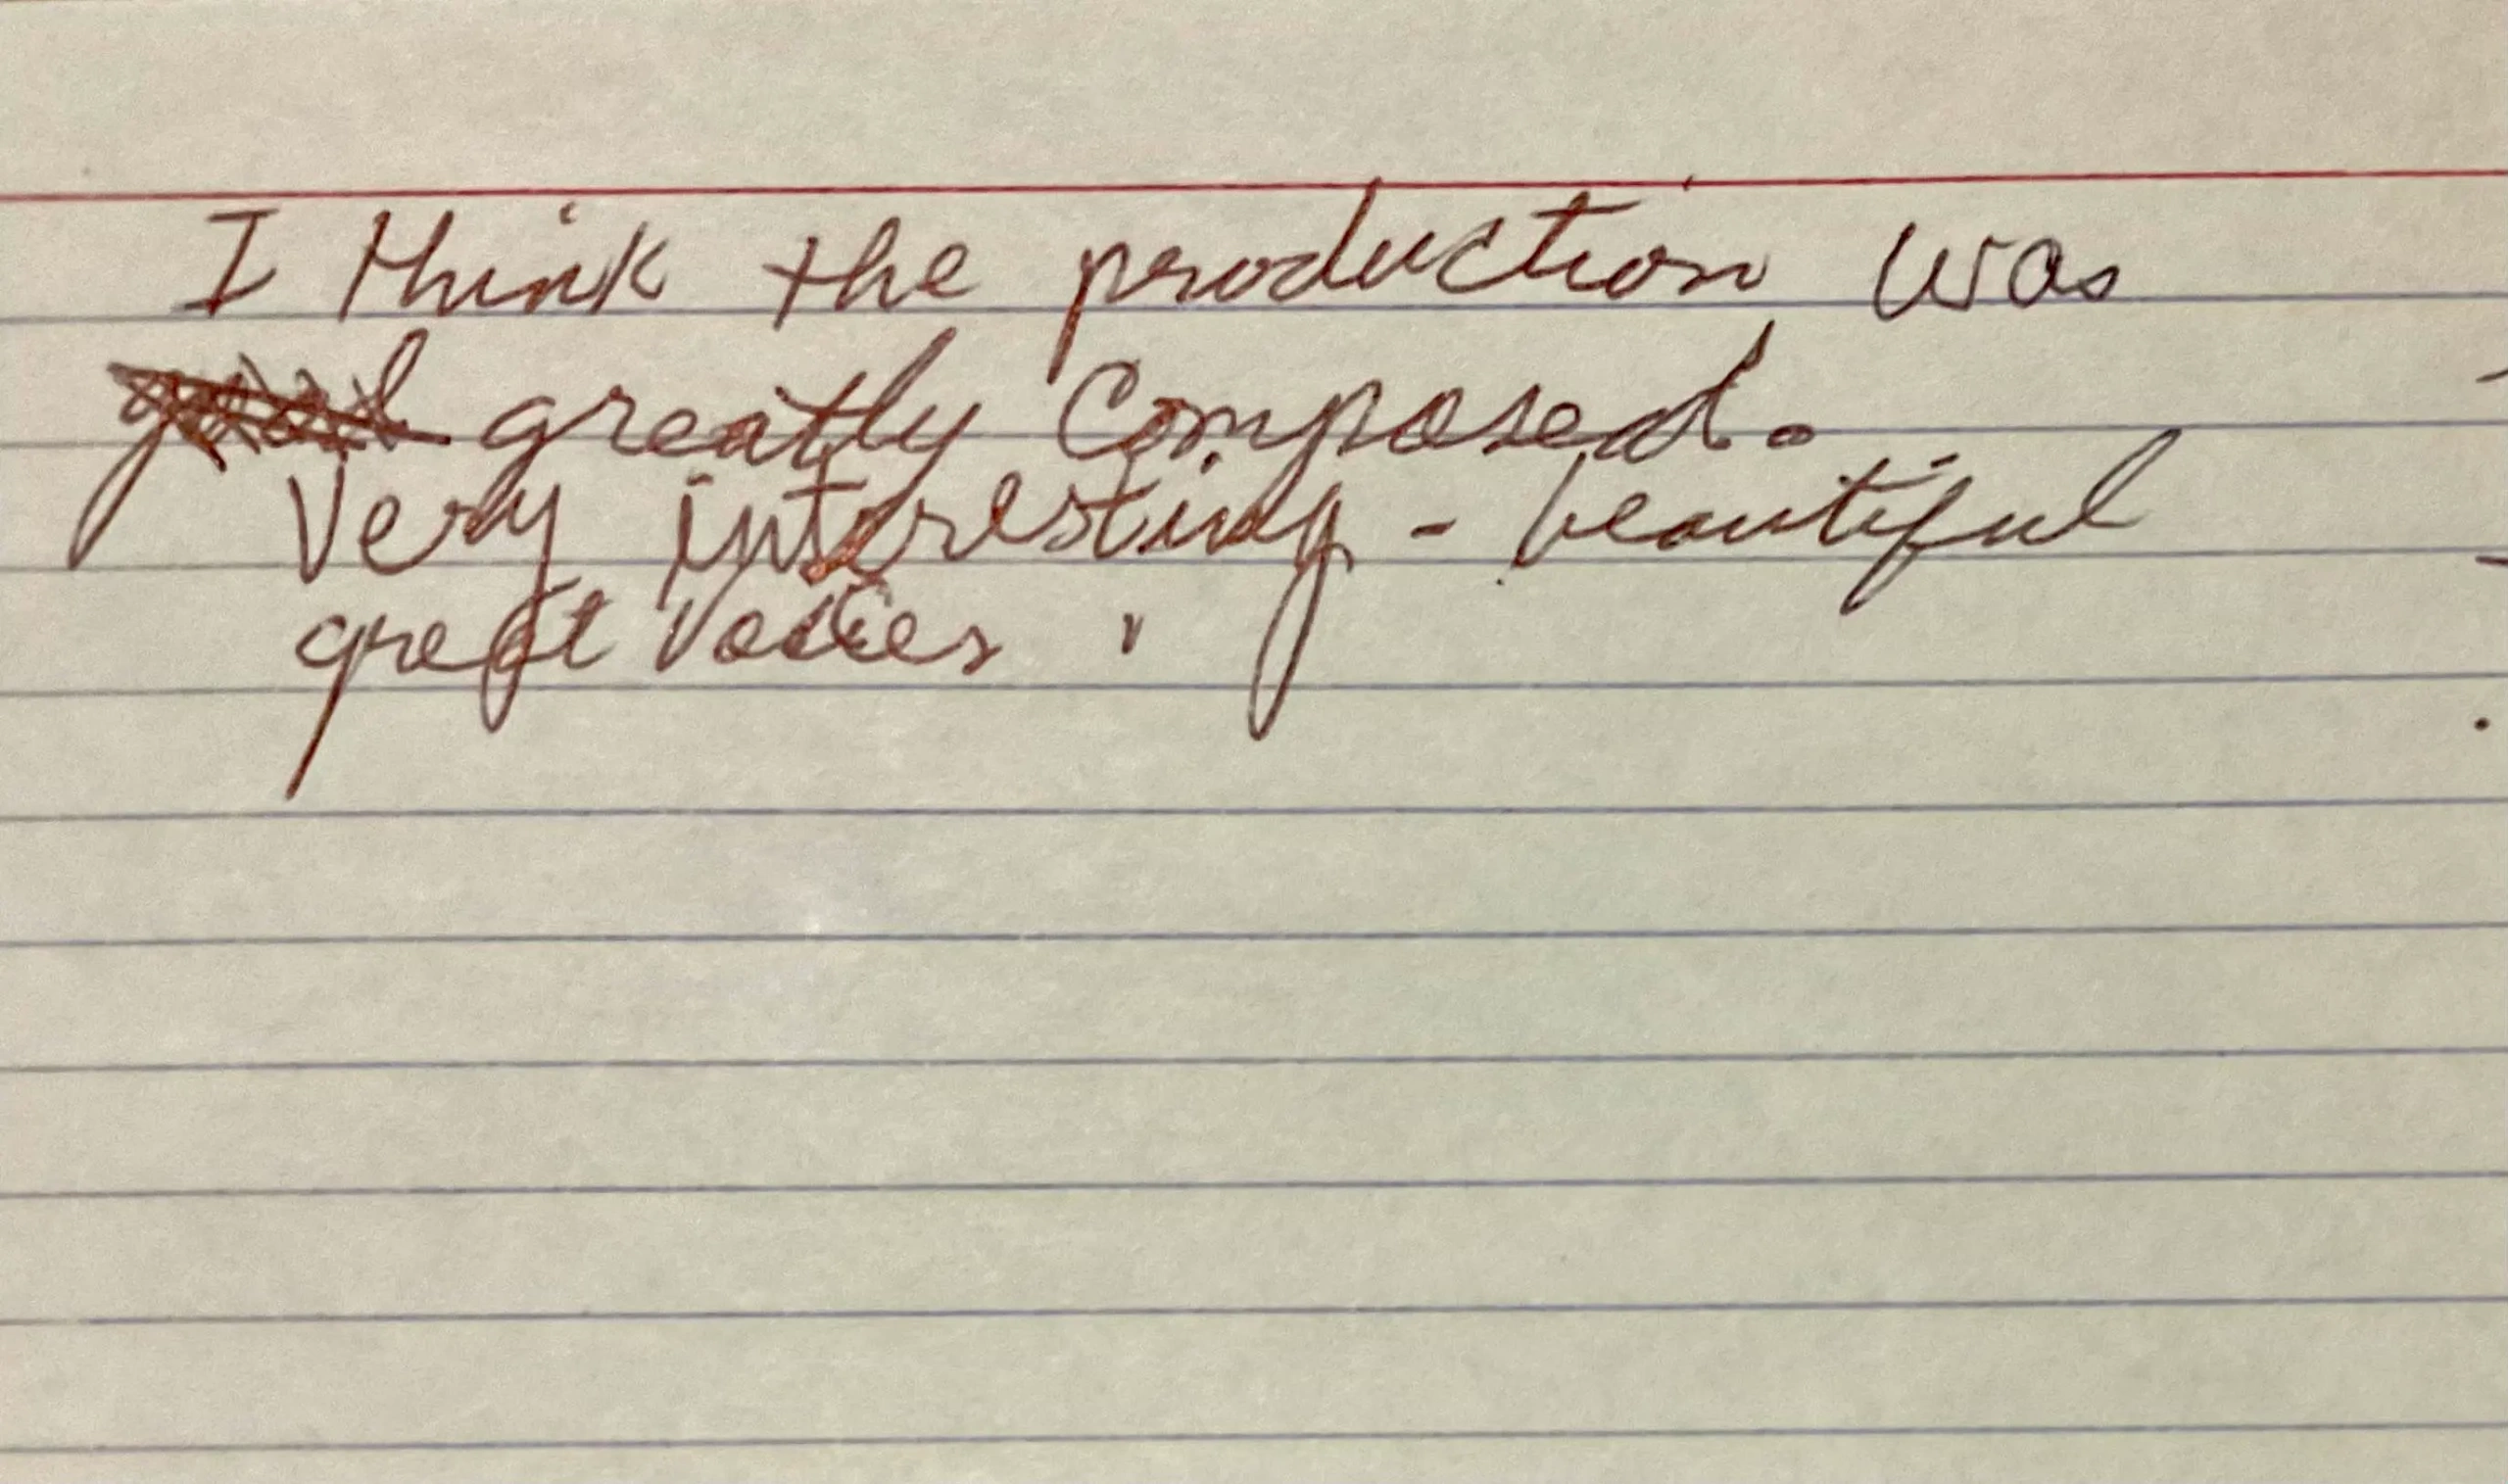 I think the production was
greatly composed.
Very interesting - beautiful
great voices.